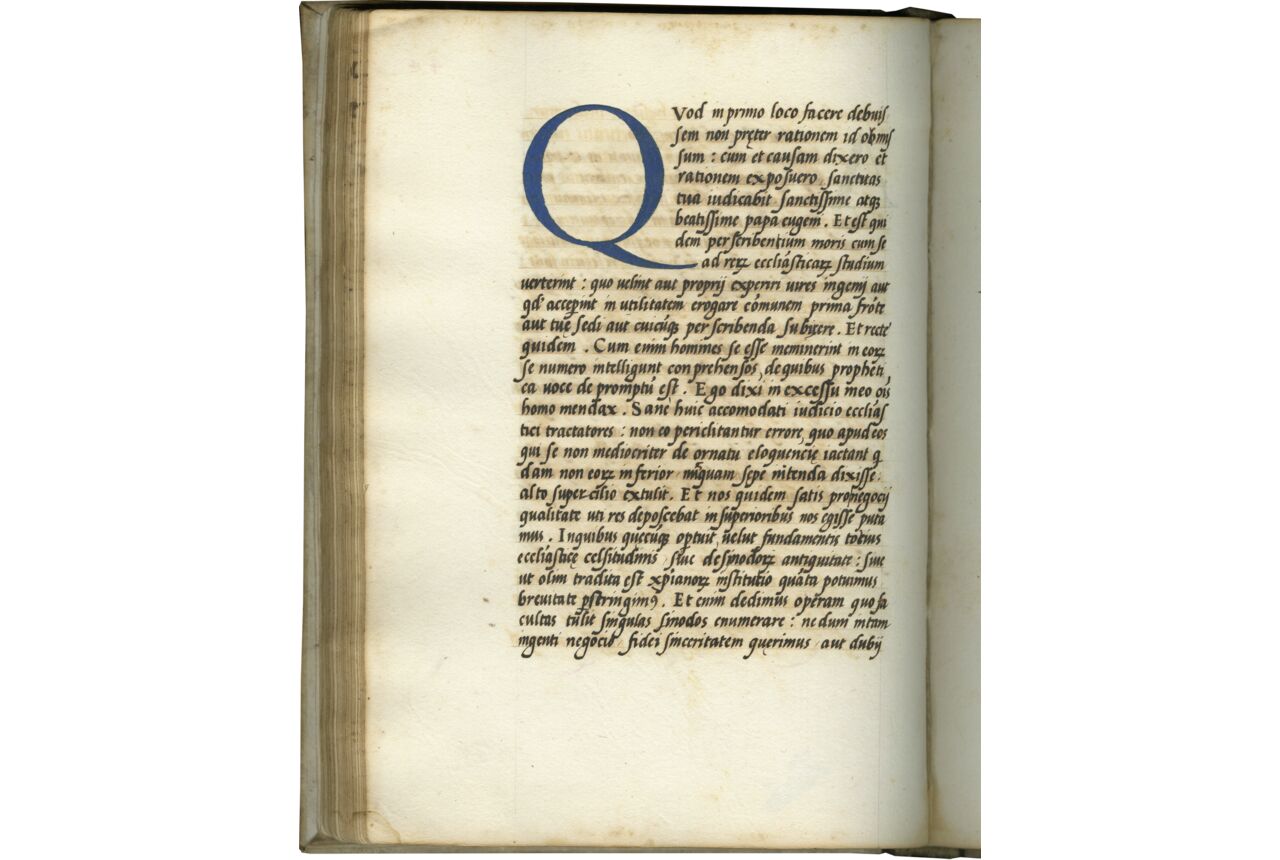 QVod in primo loco facere debuis
sem non pręter rationem id obmis
sum : cum et causam dixero et
rationem exposuero, sanctitas
tua iudicabit sanctissime atqꝫ
beatissime papa eugeni . Et est qui
dem per scribentium moris cum se
ad rerꝝ ecclīasticarꝝ studium
uerterint : quo uelint aut proprij experiri uires ingenij aut
qd' acceperint in utilitatem erogare cōmunem prima frōte
aut tuę sedi aut cuicūqꝫ per scribenda subijcere . Et recte
quidem . Cum enim homines se esse meminerint in eorꝝ
se numero intelligunt conprehensos, de quibus propheti
ca uoce de promptū est . Ego dixi in excessu meo oīs
homo mendax . Sane huic accomodati iudicio ecclīas
tici tractatores : non eo periclitantur errore, quo apud eos
qui se non mediocriter de ornatu eloquencię iactant q
dam non eorꝝ inferior nūquam sepe nitenda dixisse
alto supercilio extulit . Et nos quidem satis pro negocij
qualitate uti res deposcebat in superioribus nos egisse puta
mus . In quibus quecūqꝫ optuit uelut fundamentis totius
ecclīasticę celsitudinis siue de sinodorꝝ antiquitate : siue
ut olim tradita est xp̄ianorꝝ institutio quāta potuimus
breuitate pstringimꝰ . Et enim dedimus operam quo fa
cultas tulit singulas sinodos enumerare : ne dum in tam
ingenti negocio fidei sinceritatem quęrimus aut dubij